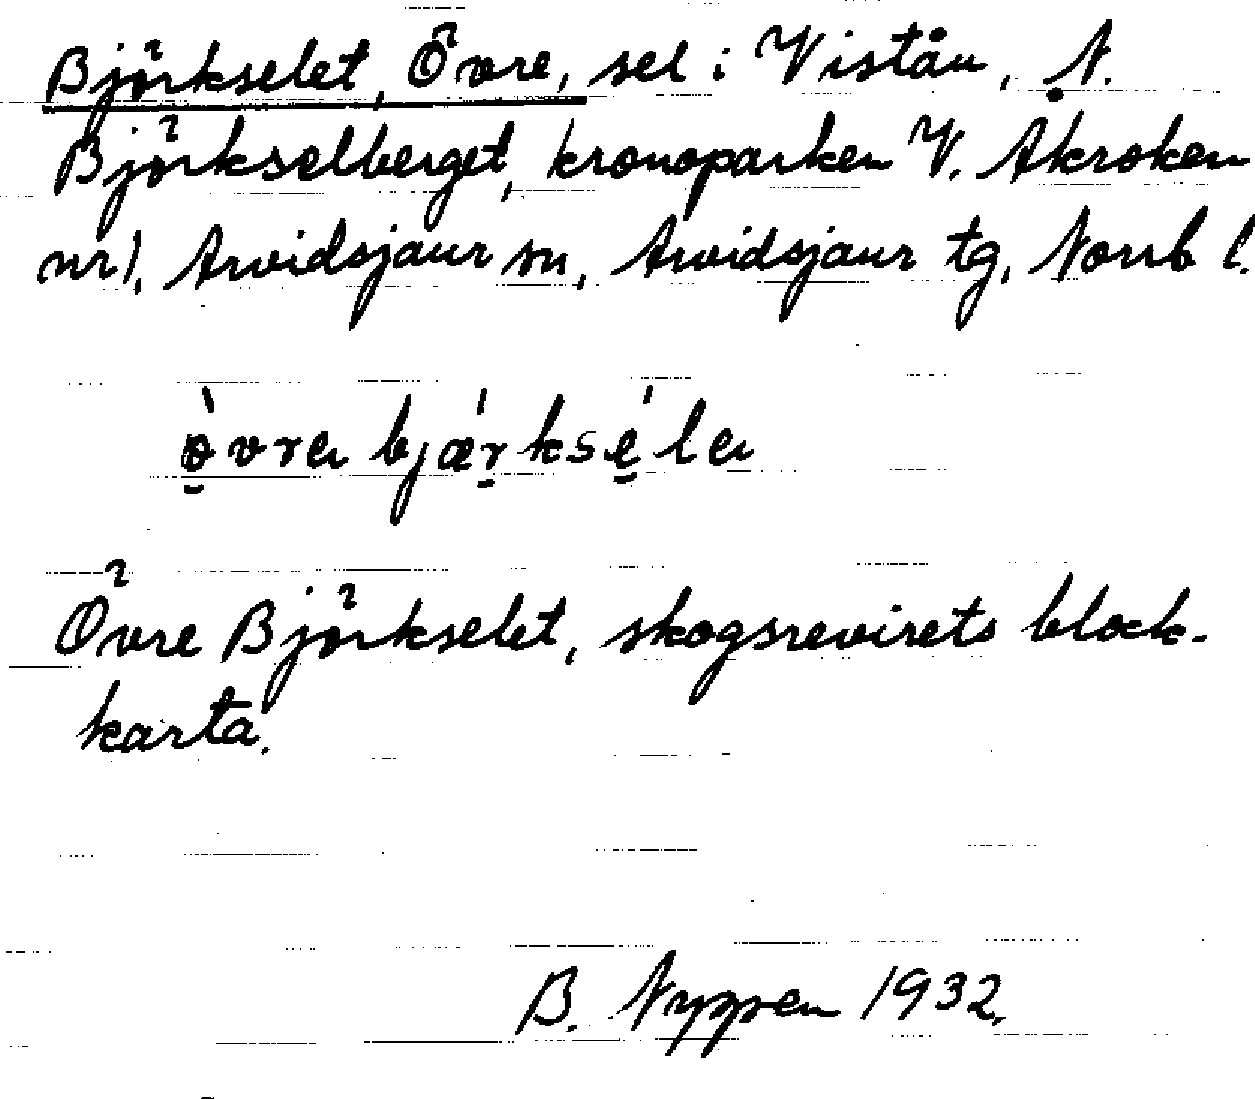 Björkselet, Övre, sel i Viståu, N.
Björkselberget, kronoparken V. Akroken
nr 1, Arvidsjaur sn, Arvidsjaur tg, Norrb l.
ö̀vrea bjǽrksélea
Övre Björkselet, skogsrevirets block-
karta.
B. Nyppen 1932.